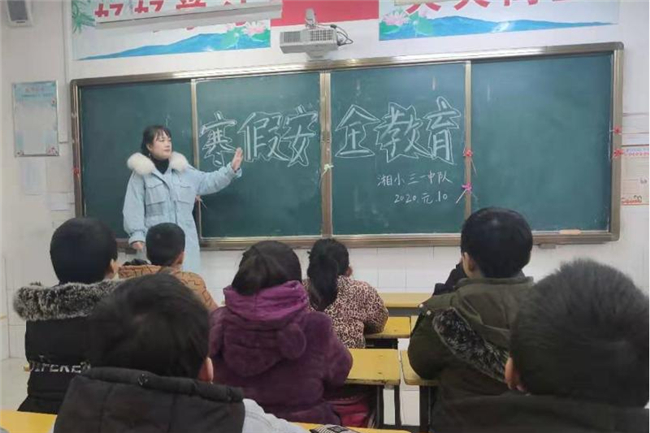 寒假安全教育
湘小三一中队
2020.元.10